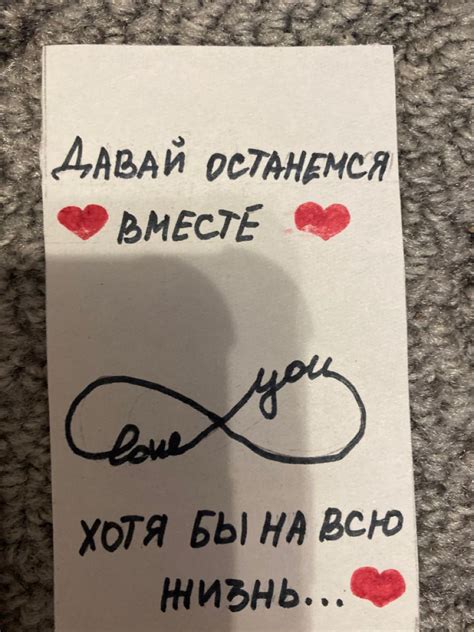 ДАВАЙ ОСТАНЕМСЯ
ВМЕСТЕ
love you
ХОТЯ БЫ НА ВСЮ
ЖИЗНЬ...